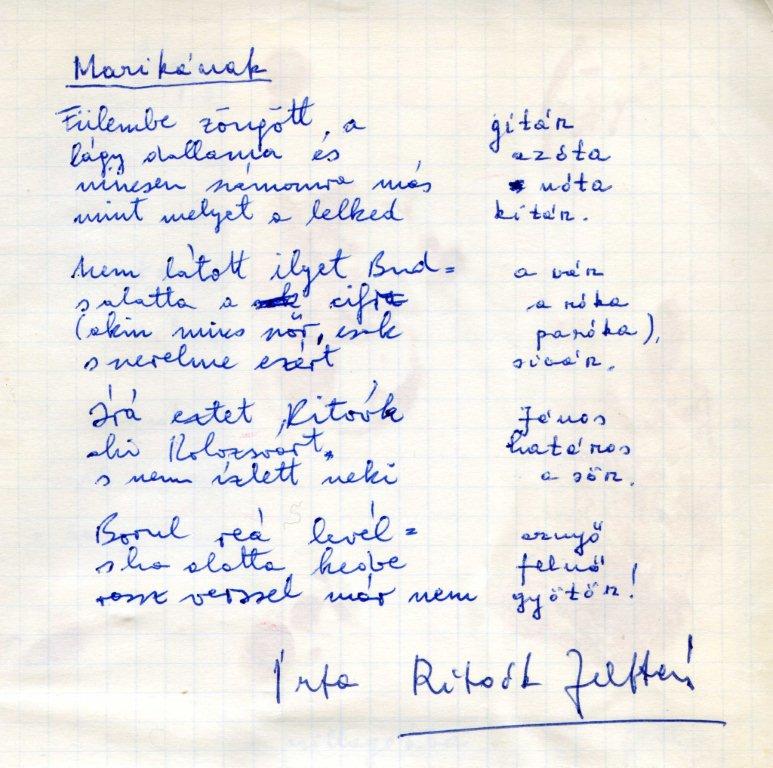 Marikának
Fülembe zöngött, a gitár
lágy dallama és azóta
nincsen számomra más nóta
mint melyet a lelked kitár.
Nem látott ilyet Bud= a vár
s alatta a cifra a róka
(akin nincs szőr, csak paróka),
s szerelme ezért sivár.
Írá eztet Ritoók János
ki Kolozsvárt, határos
s nem ízlett neki a sör.
Borul reá levél= ernyő
s ha alatta kedve felnő
rossz verssel már nem gyötör!
Írta Ritoók